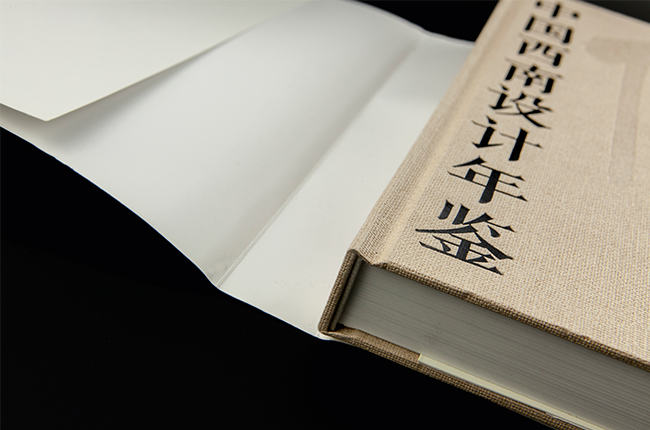 中国西南设计年鉴